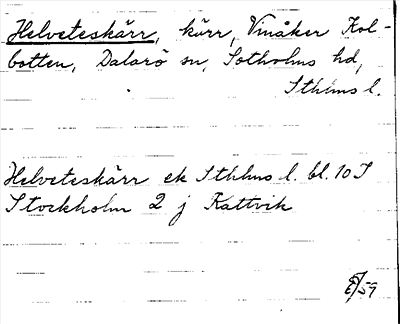 Helveteskärr, kärr, Vinåker Kol-
botten, Dalarö sn, Sotholms hd,
Sthlms l.
Helveteskärr ek Sthlms l. bl. 10 I
Stockholm 2 j Kattvik
/59